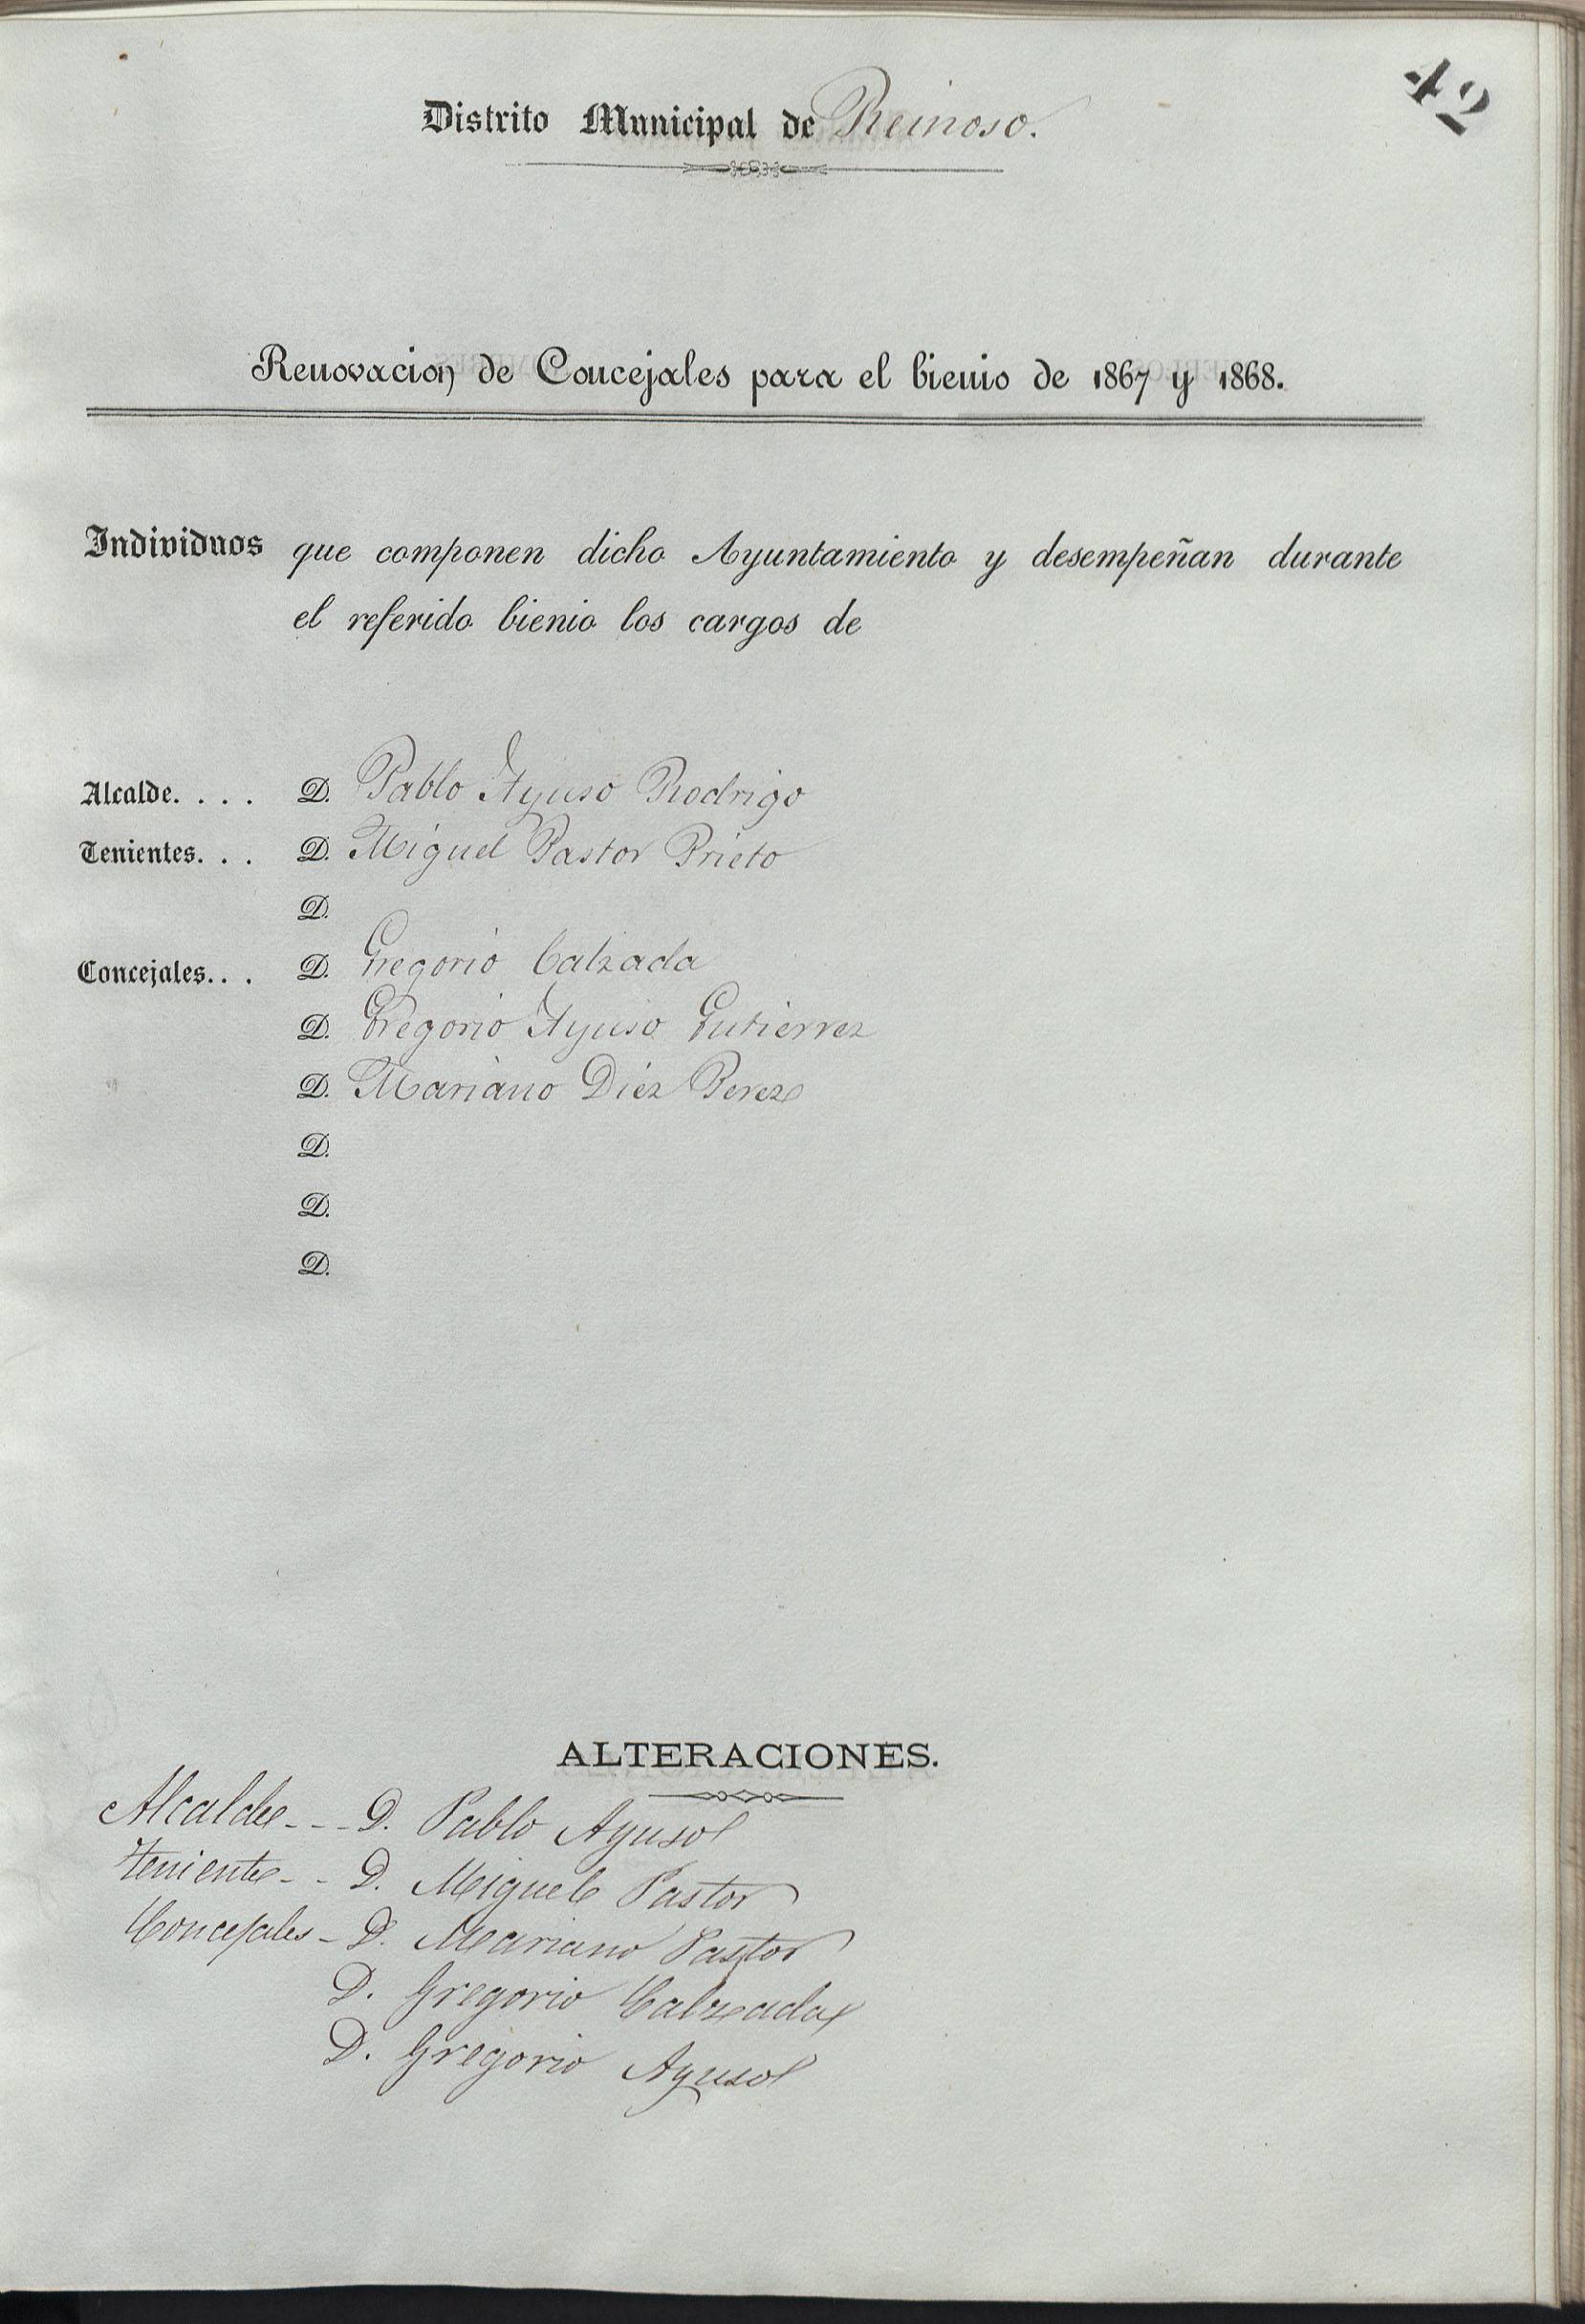 42
Distrito Municipal de Reinoso.
Renovacion de Concejales para el bienio de 1867 y 1868.
Individuos que componen dicho Ayuntamiento y desempeñan durante
el referido bienio los cargos de
Alcalde. . . . D. Pablo Ayuso Rodrigo
Tenientes. . . D. Miguel Pastor Prieto
D.
Concejales. . . D. Gregorio Calzada
D. Gregorio Ayuso Gutierrez
D. Mariano Diez Perez
D.
D.
D.
ALTERACIONES.
Alcalde - - - D. Pablo Ayuso
Teniente - - D. Miguel Pastor
Concejales - D. Mariano Pastor
D. Gregorio Calzada
D. Gregorio Ayuso